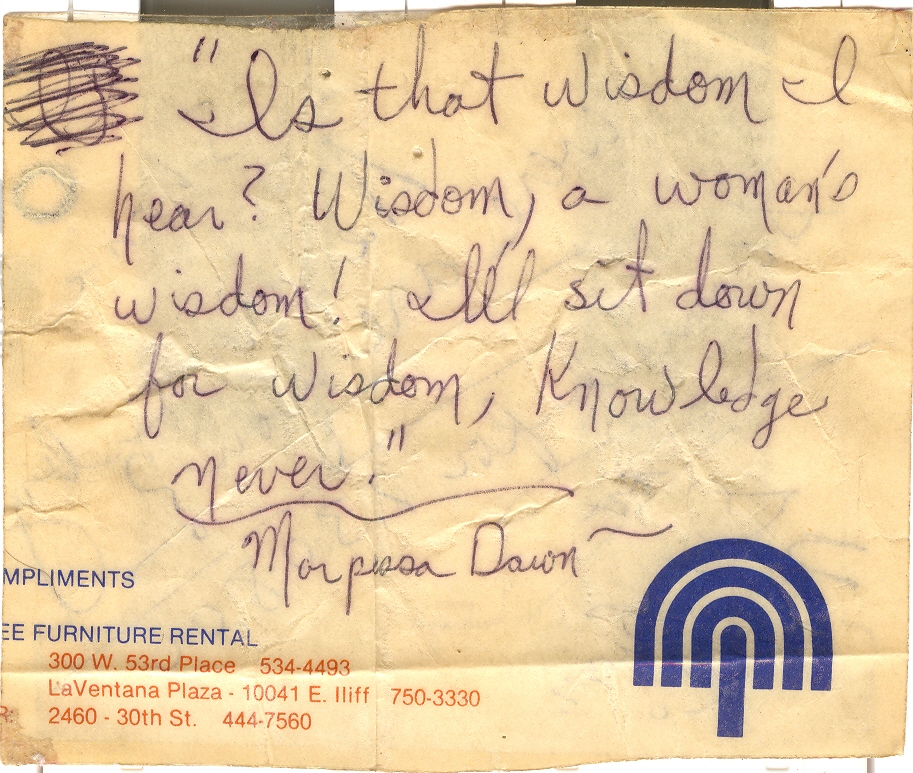 "Is that wisdom I
hear? Wisdom, a woman's
wisdom! I'll sit down
for wisdom, Knowledge
never."
Marpessa Dawn
MPLIMENTS
EE FURNITURE RENTAL
300 W. 53rd Place 534-4493
LaVentana Plaza - 10041 E. Iliff 750-3330
R: 2460 - 30th St. 444-7560